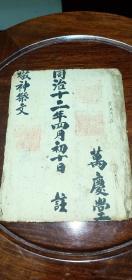 萬慶堂
同治十二年四月初十日 註
敬神祭文